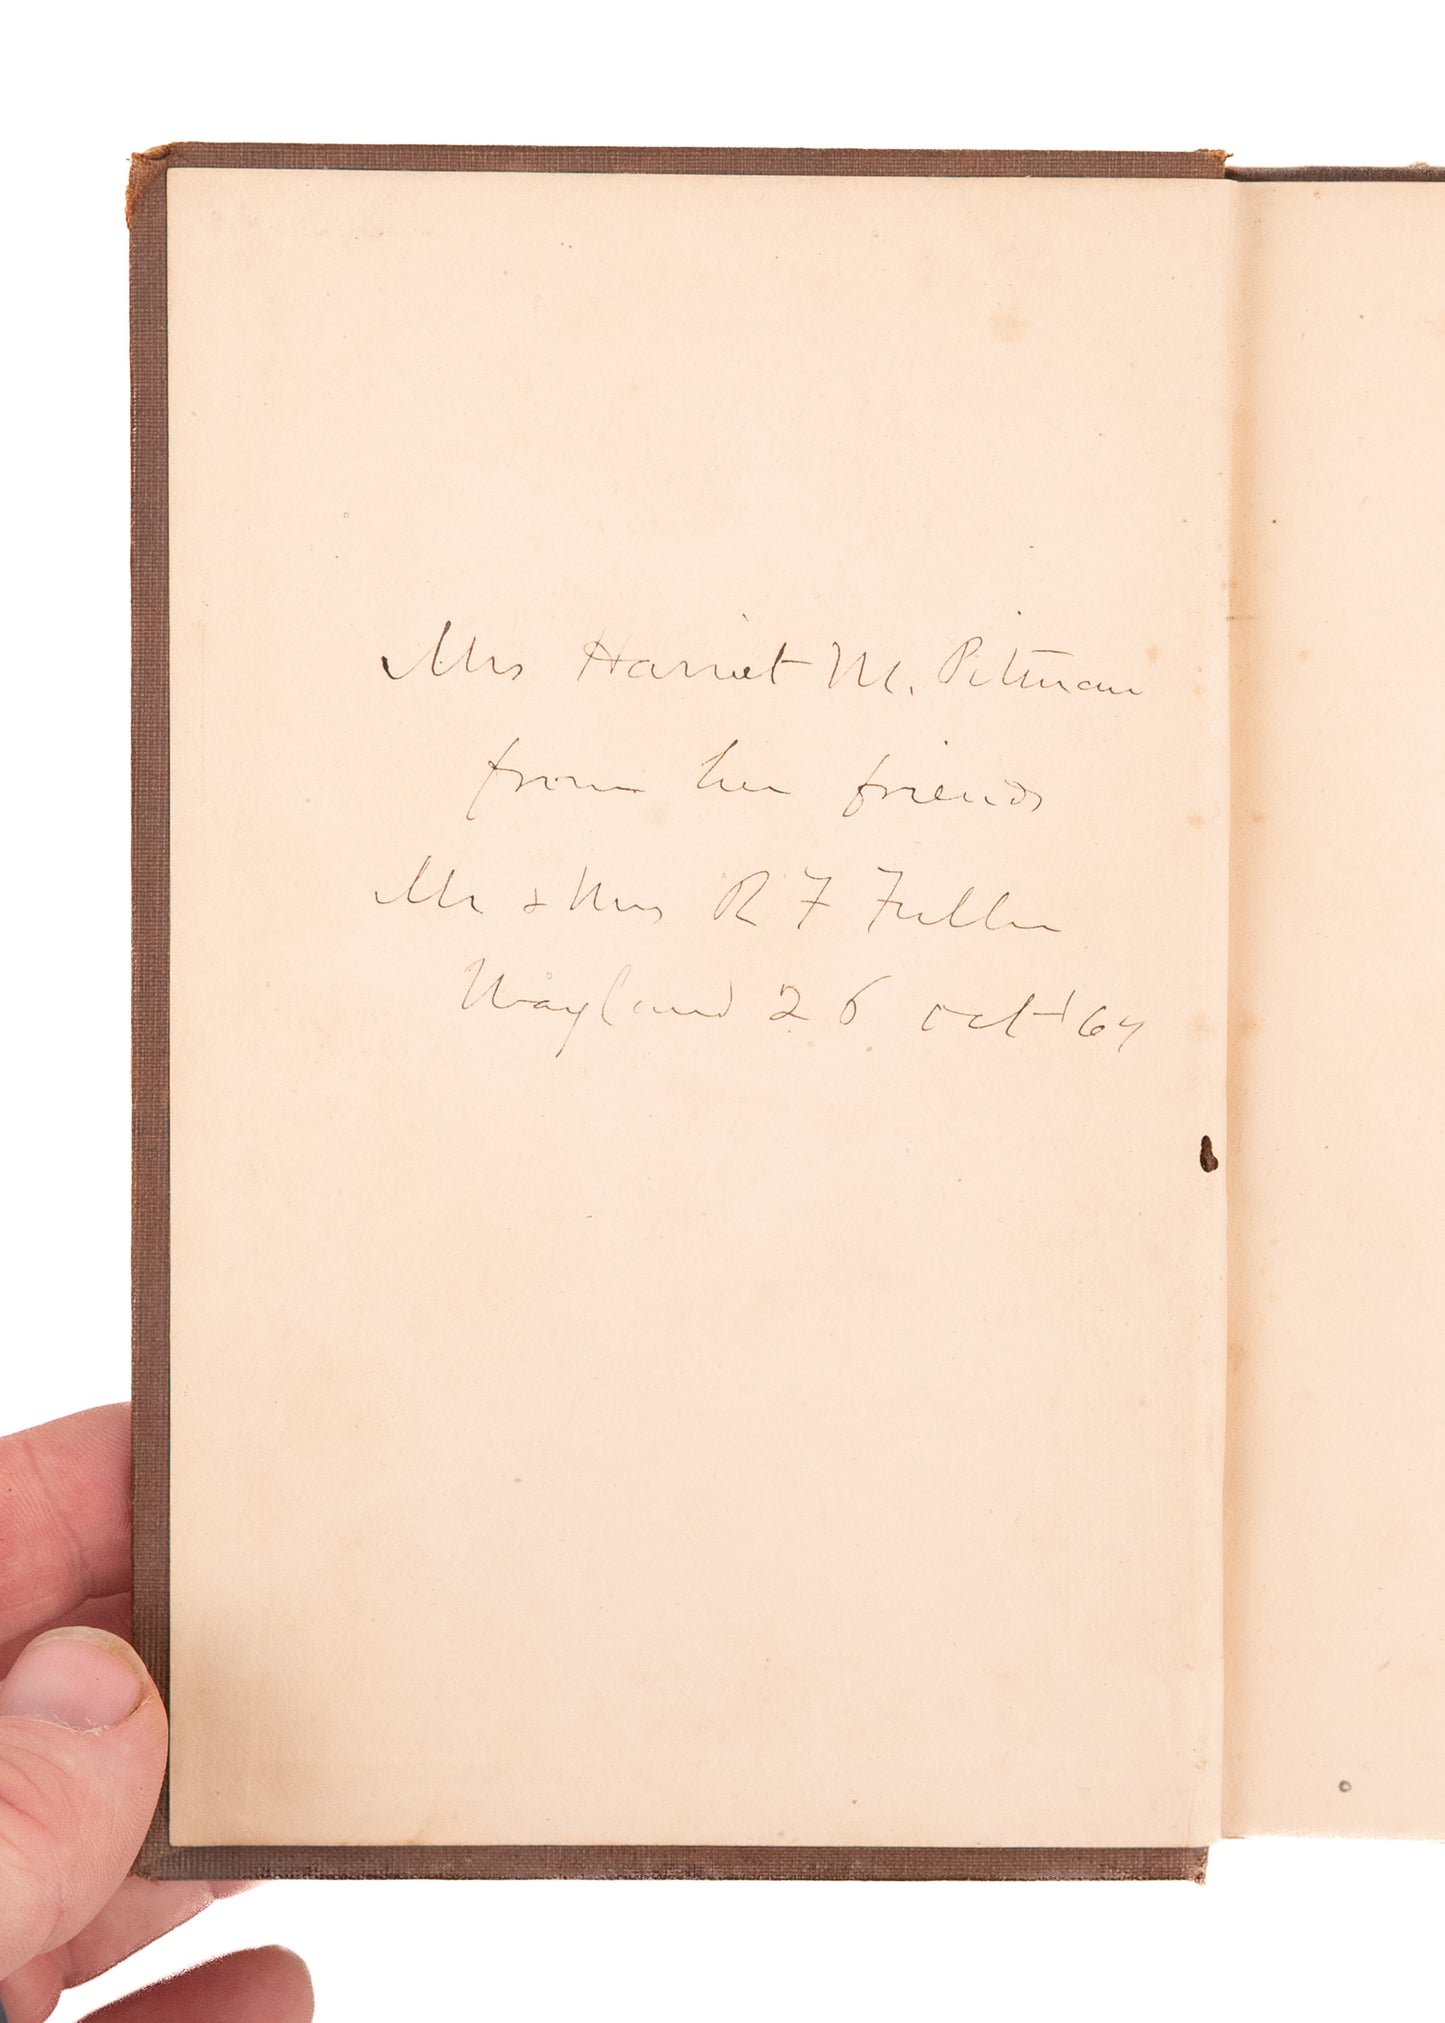 Mrs Harriet M. Pittman
from her friends
Mr & Mrs R F Fuller
Wayland 26 Oct '67